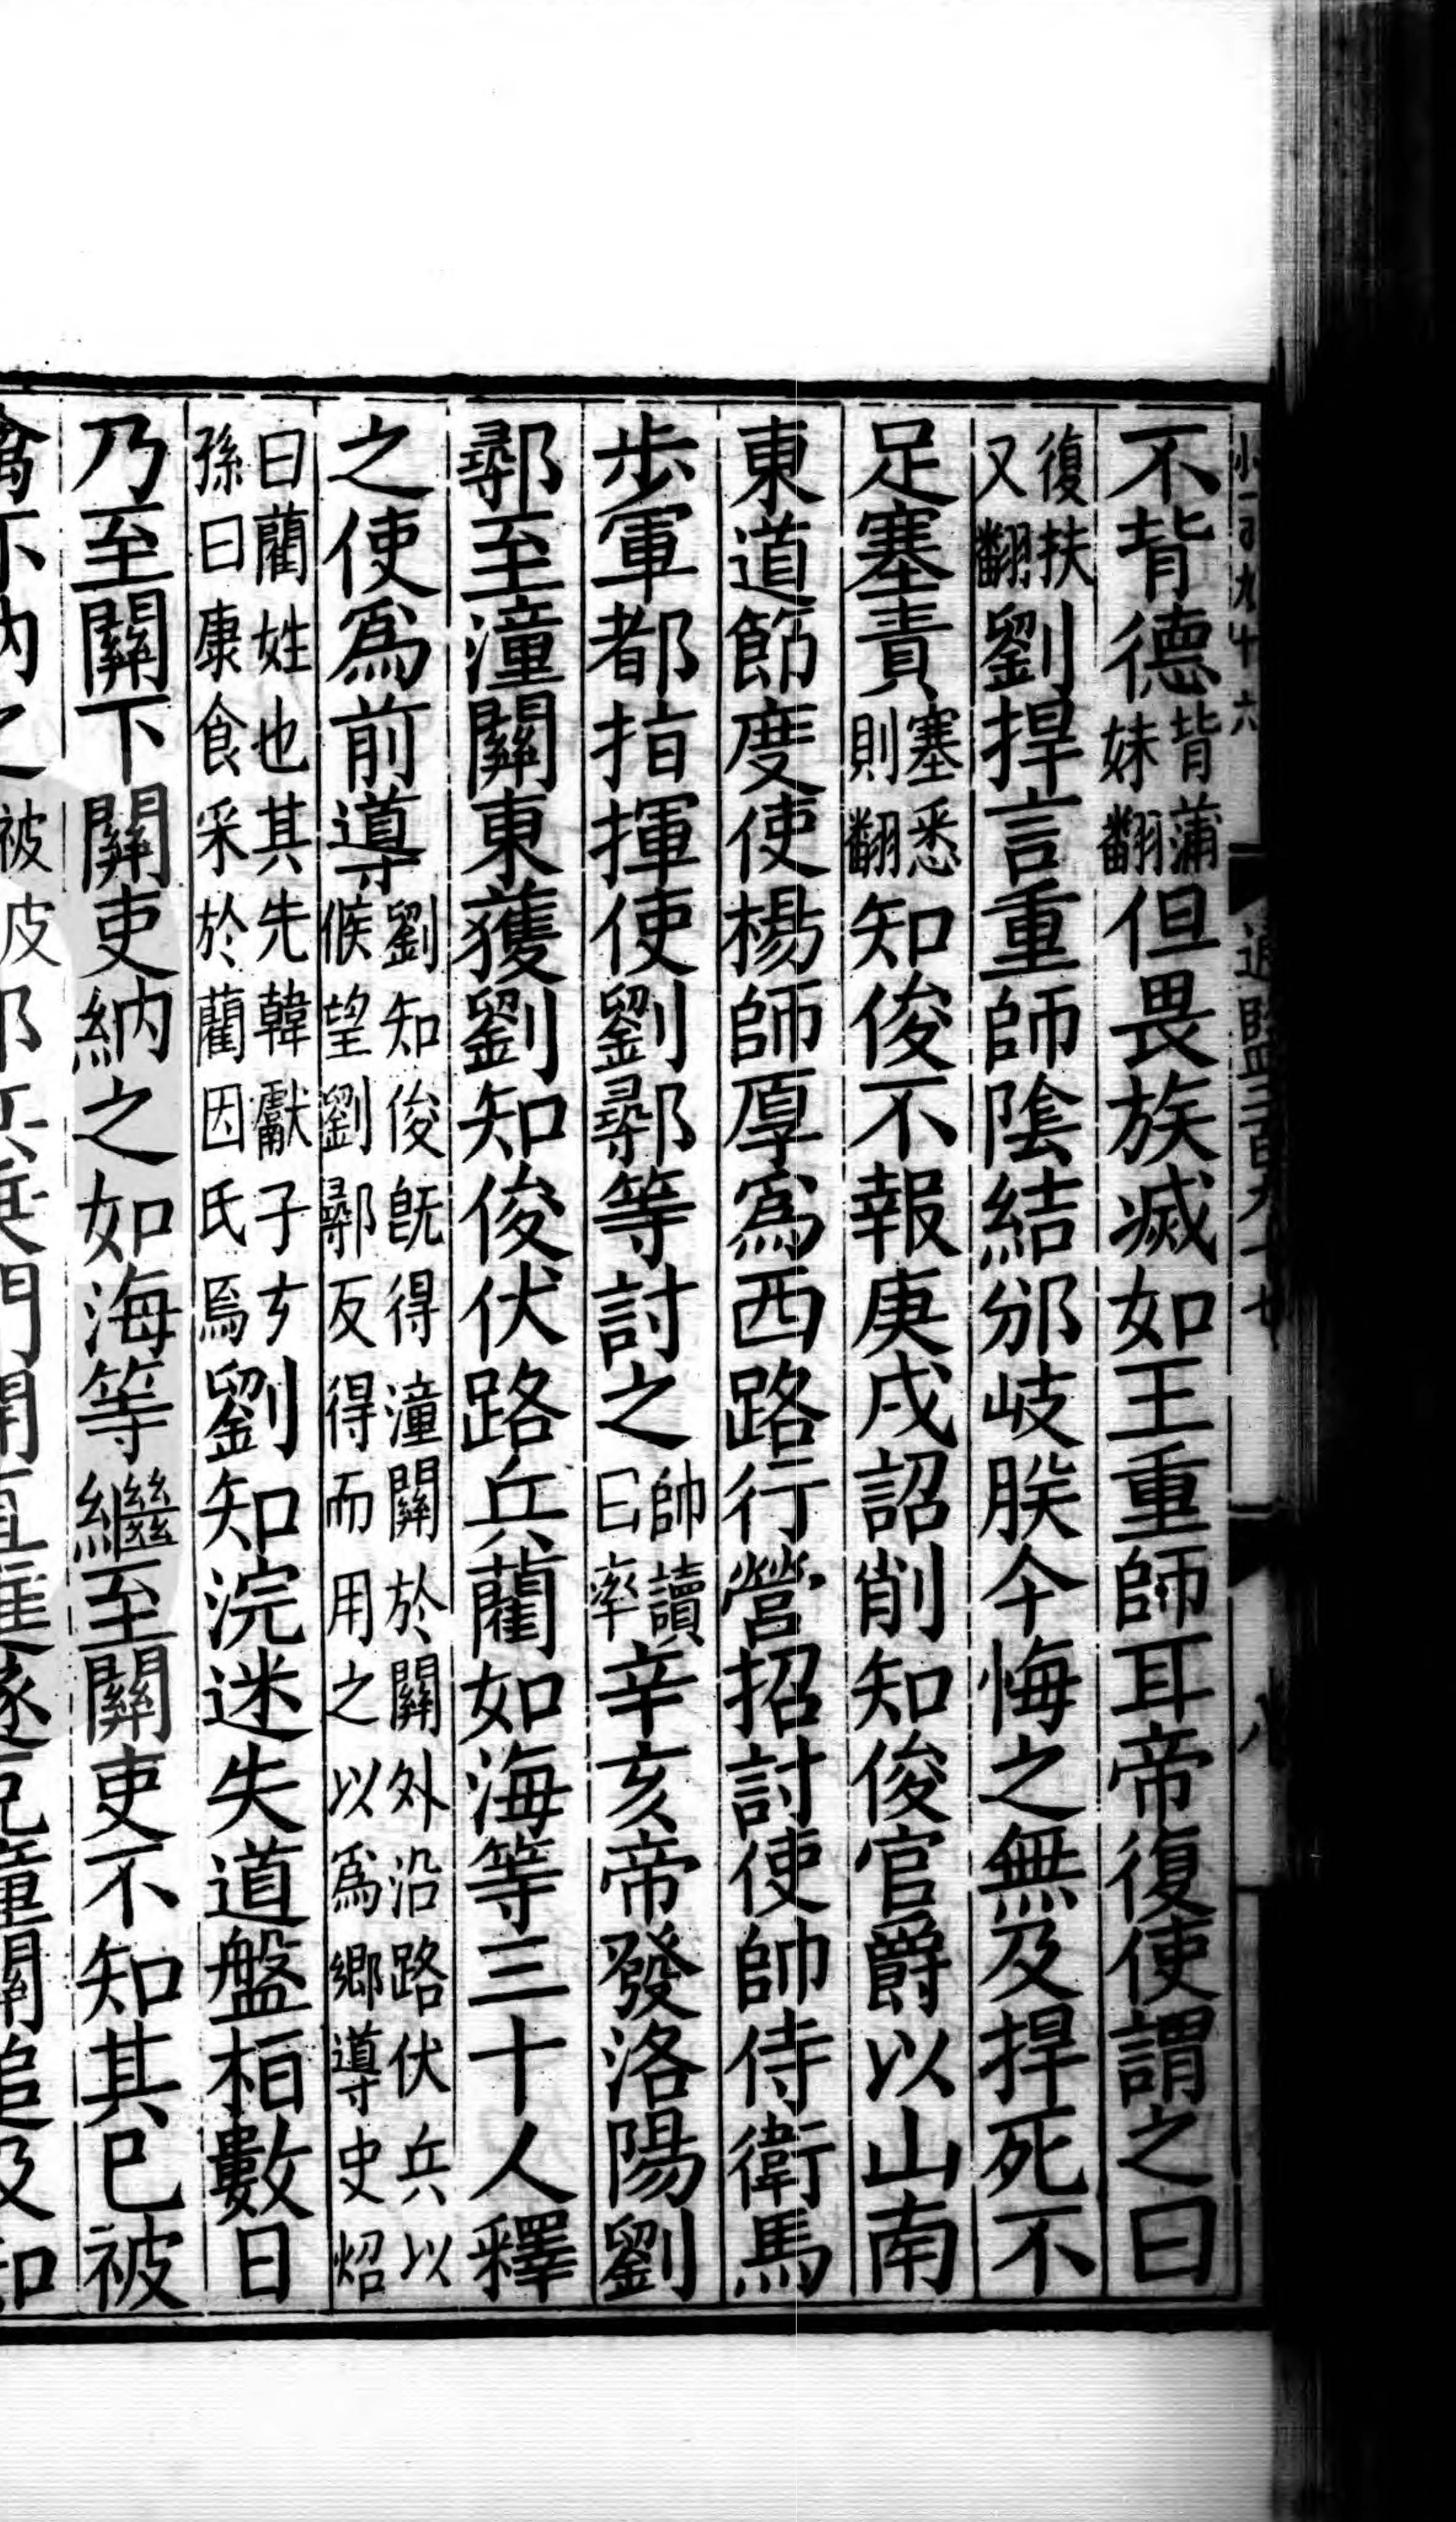 不背德背蒲妹翻但畏族滅如王重師耳帝復使謂之曰
復扶又翻劉捍言重師陰結邠岐朕今悔之無及捍死不
足塞責塞悉則翻知俊不報庚戌詔削知俊官爵以山南
東道節度使楊師厚爲西路行營招討使帥侍衛馬
步軍都指揮使劉鄩等討之帥讀曰率辛亥帝發洛陽劉
鄩至潼關東獲劉知俊伏路兵藺如海等三十人釋
之使爲前導劉知俊旣得潼關於關外沿路伏兵以候望劉鄩反得而用之以爲鄉導史炤
曰藺姓也其先韓獻子玄孫曰康食采於藺因氏焉劉知浣迷失道盤桓數日
乃至關下關吏納之如海等繼至關吏不知其已被
禽亦納之被皮